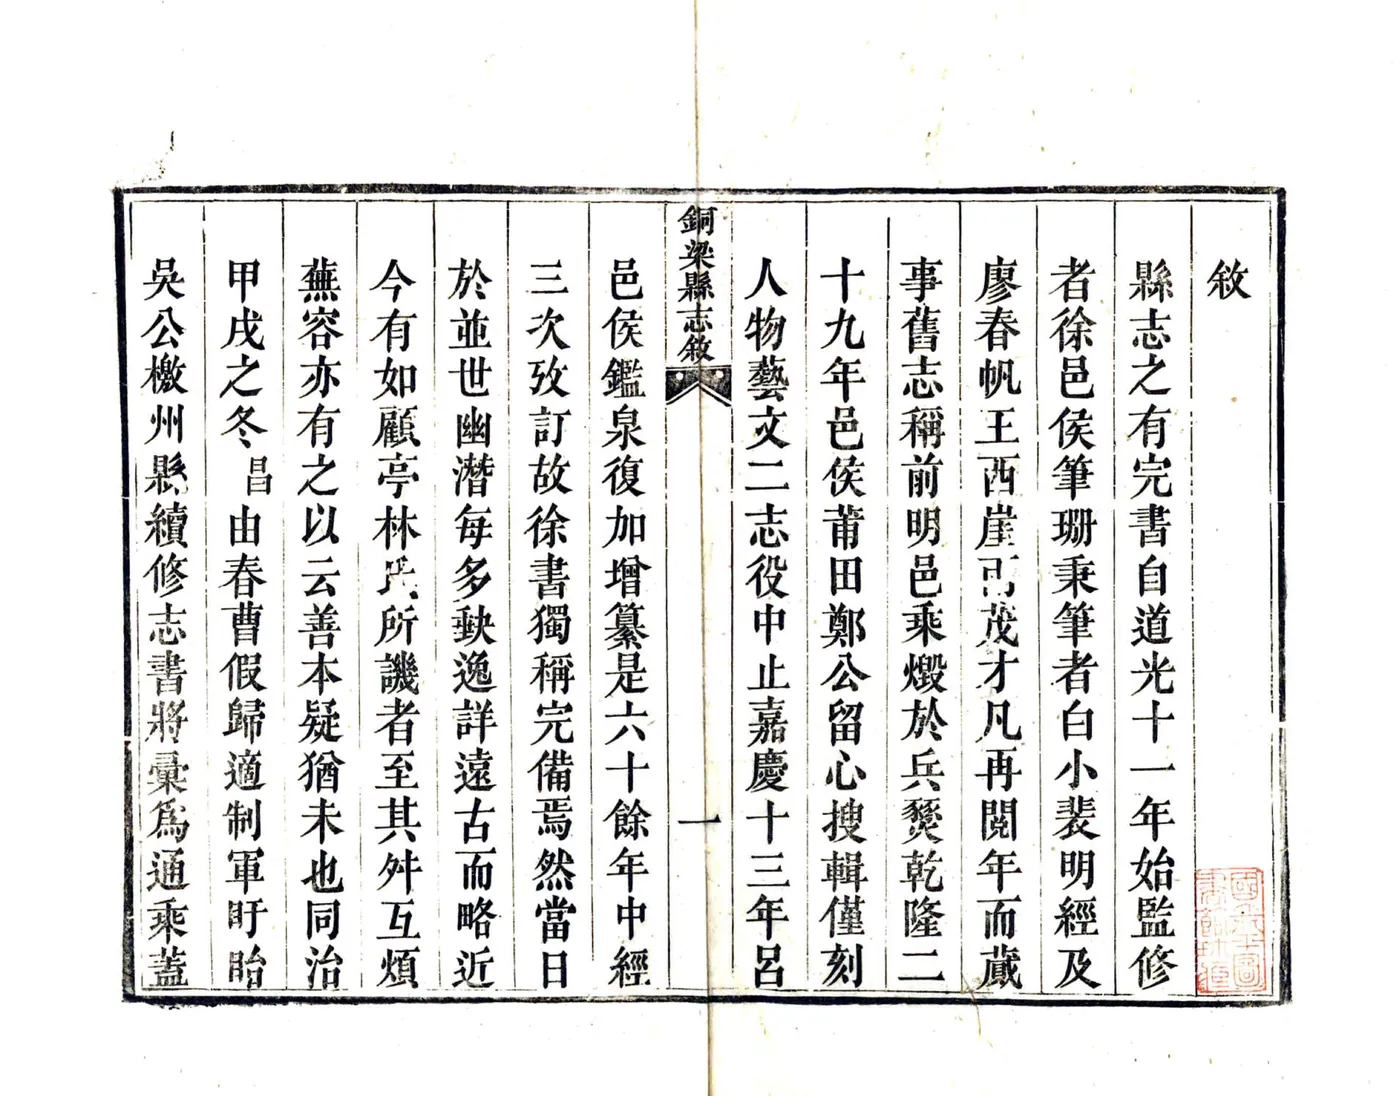 敘
縣志之有完書自道光十一年始監修
者徐邑侯筆珊秉筆者白小裴明經及
廖春帆王西崖兩茂才凡再閱年而蕆
事舊志稱前明邑乘燬於兵燹乾隆二
十九年邑侯莆田鄭公留心搜輯僅刻
人物藝文二志役中止嘉慶十三年呂
銅梁縣志敘
一
邑侯鑑泉復加增纂是六十餘年中經
三次攷訂故徐書獨稱完備焉然當日
於並世幽潛每多缺逸詳遠古而略近
今有如顧亭林氏所譏者至其舛互煩
蕪容亦有之以云善本疑猶未也同治
甲戌之冬昌由春曹假歸適制軍盱眙
吳公檄州縣續修志書將彙爲通乘蓋